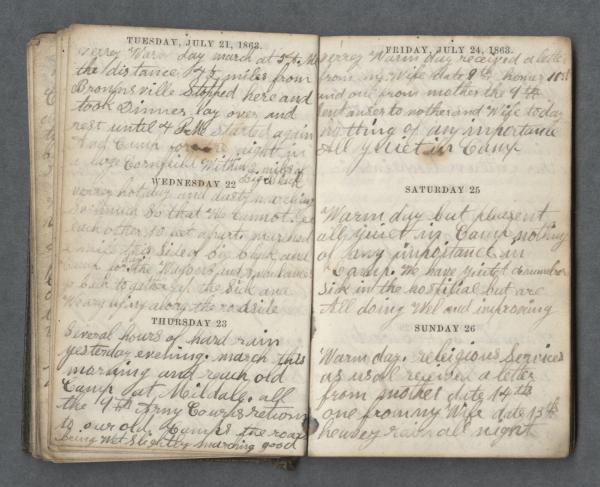 TUESDAY, JULY 21, 1863.
verrey Warm day march at 5 A.M.
the distance miles from
Brownsville Stopped here and
took Dinner lay over and
rest until 4 P.M. Started again
And Camp for night in
a large Cornfield Within 2 miles of
Big Black
WEDNESDAY 22
verrey hot day and dusty marching
So much So that We Cannot See
each other 10 feet apart, marched
2 miles this Side of big Black and
Camp for the Wagons and Ambulances
to gather all the Sick and
Weary lying along the roadside
THURSDAY 23
Several hours of hard rain
yesterday evening. march this
morning and reach old
Camp at Milldale. all
the 9th Army Courps return
to our old Camps the roar
being Wet Slightly marching good
FRIDAY, JULY 24, 1863.
verrey Warm day received a letter
from my Wife date 9th
and one from mother the 9th
Sent ansers to mother and Wife today
nothing of any importance
All quiet in Camp
SATURDAY 25
Warm day but plesent
all quiet in Camp nothing
of any importance in
Camp. We have quite a number
Sick in the hospitial but are
All doing Wel and improving
SUNDAY 26
Warm day. religious Services
as usual received a letter
from mother date 14th
one from my Wife date 13th
heavey rain all night